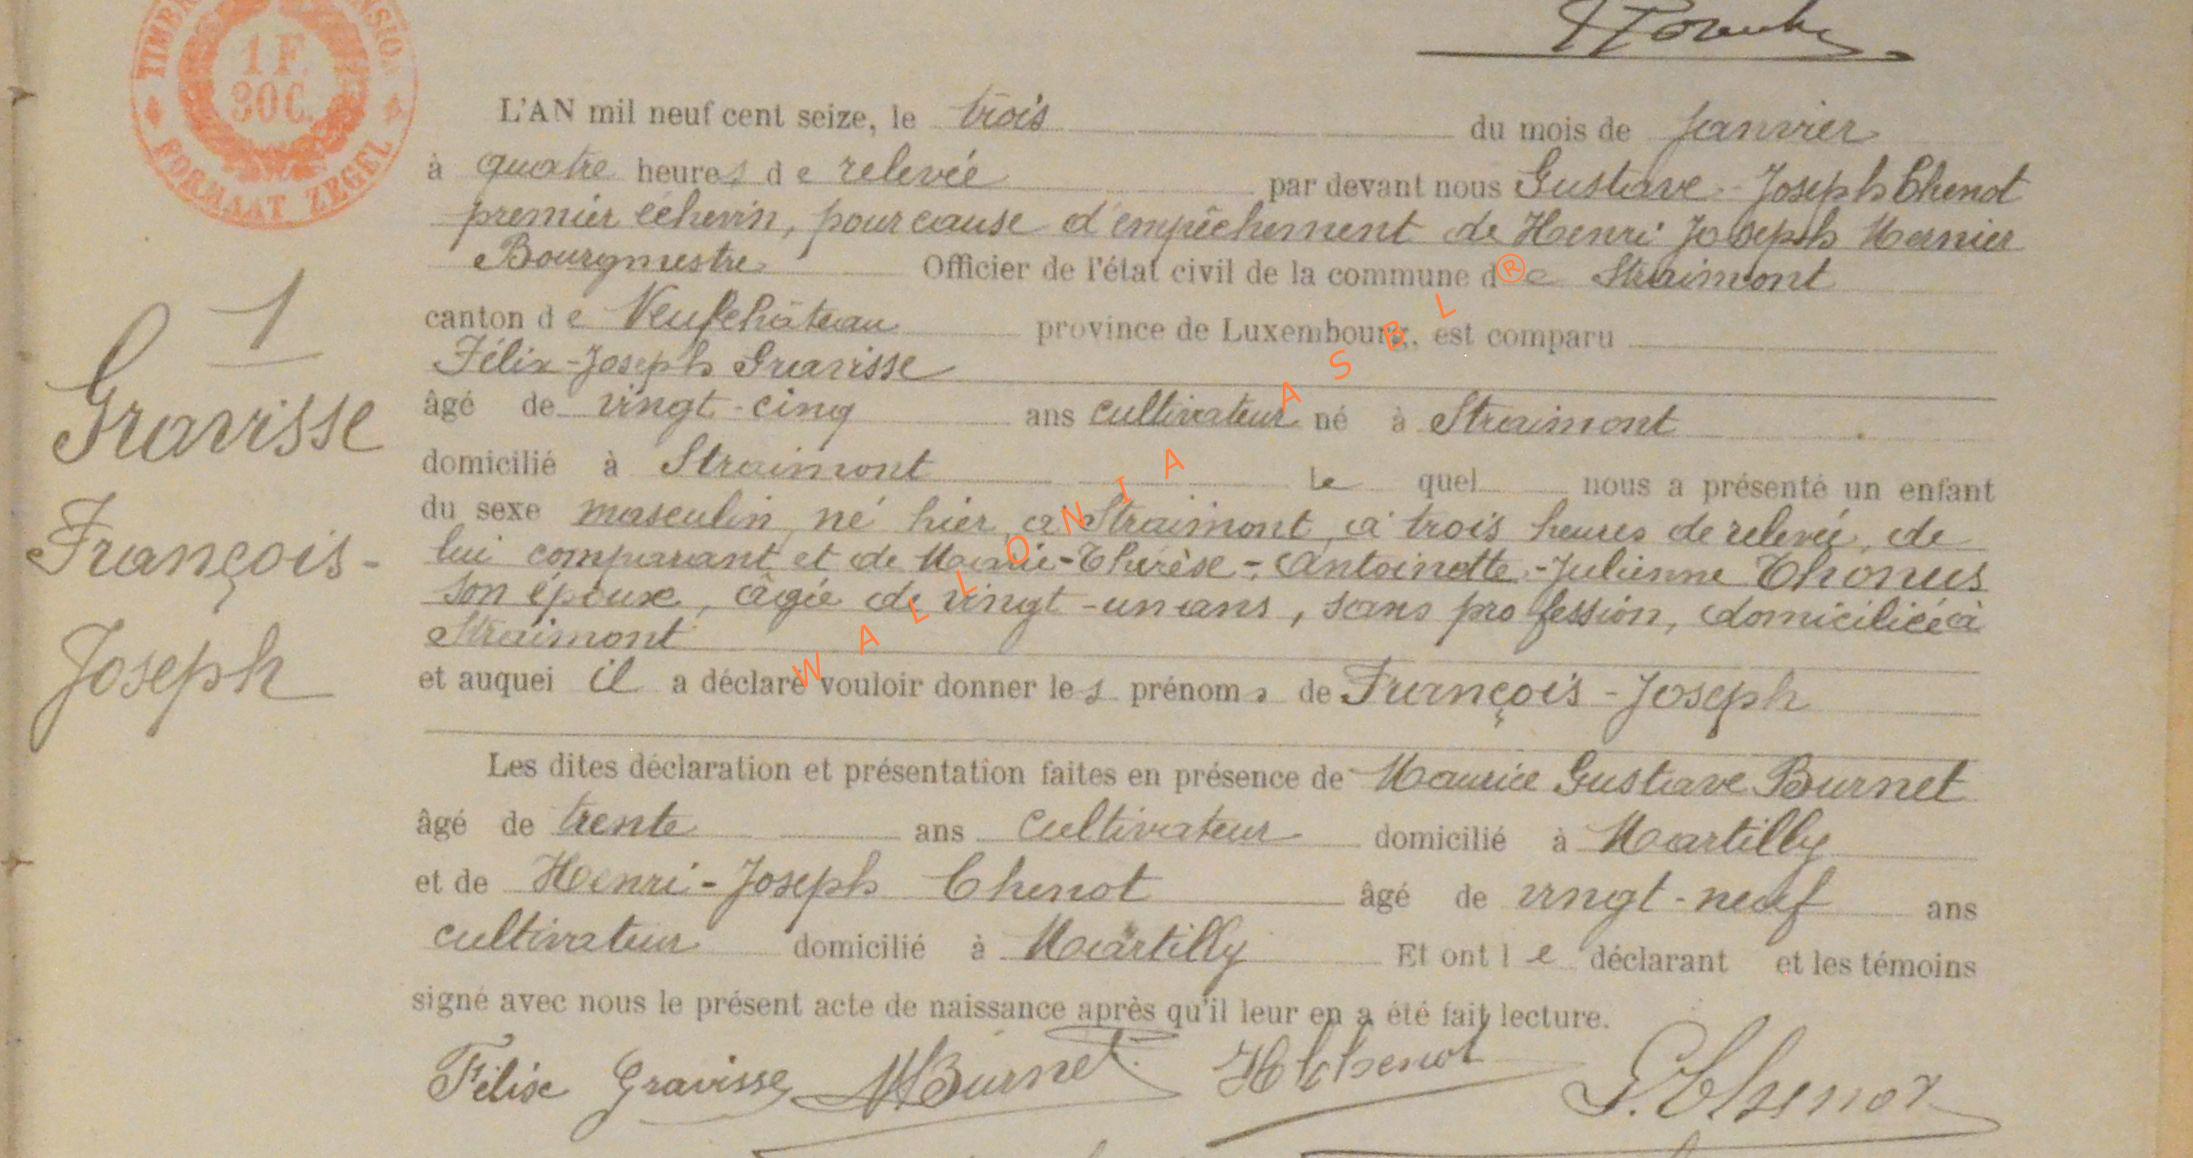 1 F.
30 C.
FORMAAT ZEGEL
L'AN mil neuf cent seize, le trois du mois de Janvier
à quatre heures de relevée par devant nous Gustave-Joseph Chenot
premier échevin, pour cause d'empêchement de Henri Joseph Mernier
Bourgmestre Officier de l'état civil de la commune de Straimont
canton de Neufchâteau province de Luxembourg, est comparu
Félix-Joseph Gravisse
âgé de vingt-cinq ans cultivateur né à Straimont
domicilié à Straimont le quel nous a présenté un enfant
du sexe masculin, né hier, à Straimont, à trois heures de relevée, de
lui comparant et de Marie-Thérèse-Antoinette-Julienne Thonus
son épouse, âgée de vingt-un ans, sans profession, domiciliée à
Straimont
et auquel il a déclaré vouloir donner les prénoms de François-Joseph
Les dites déclaration et présentation faites en présence de Maurice Gustave Burnet
âgé de trente ans cultivateur domicilié à Martilly
et de Henri-Joseph Chenot âgé de vingt-neuf ans
cultivateur domicilié à Martilly Et ont le déclarant et les témoins
signé avec nous le présent acte de naissance après qu'il leur en a été fait lecture.
Félix Gravisse MBurnet H Chenot G. Chenot
1
Gravisse
François-
Joseph
WALLONIA ASBL ®